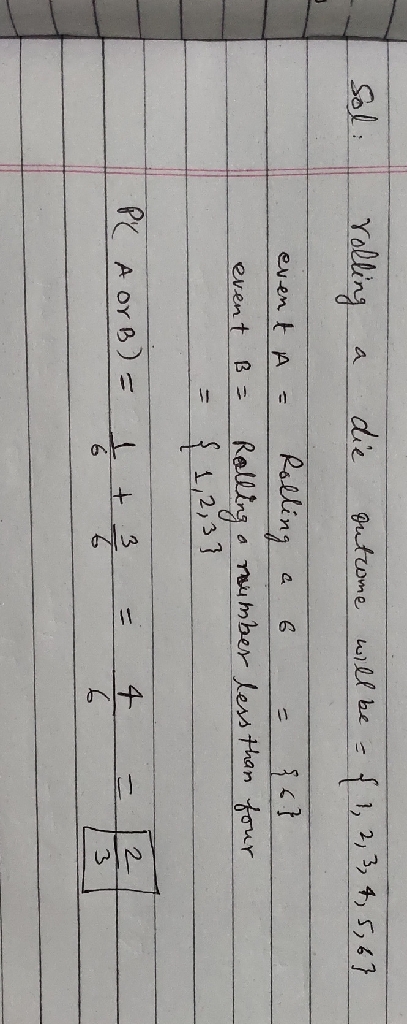 Sol: rolling a die outcome will be = { 1, 2, 3, 4, 5, 6 }
event A = Rolling a 6 = { 6 }
event B = Rolling a number less than four
= { 1, 2, 3 }
P( A or B ) = 1/6 + 3/6 = 4/6 = 2/3